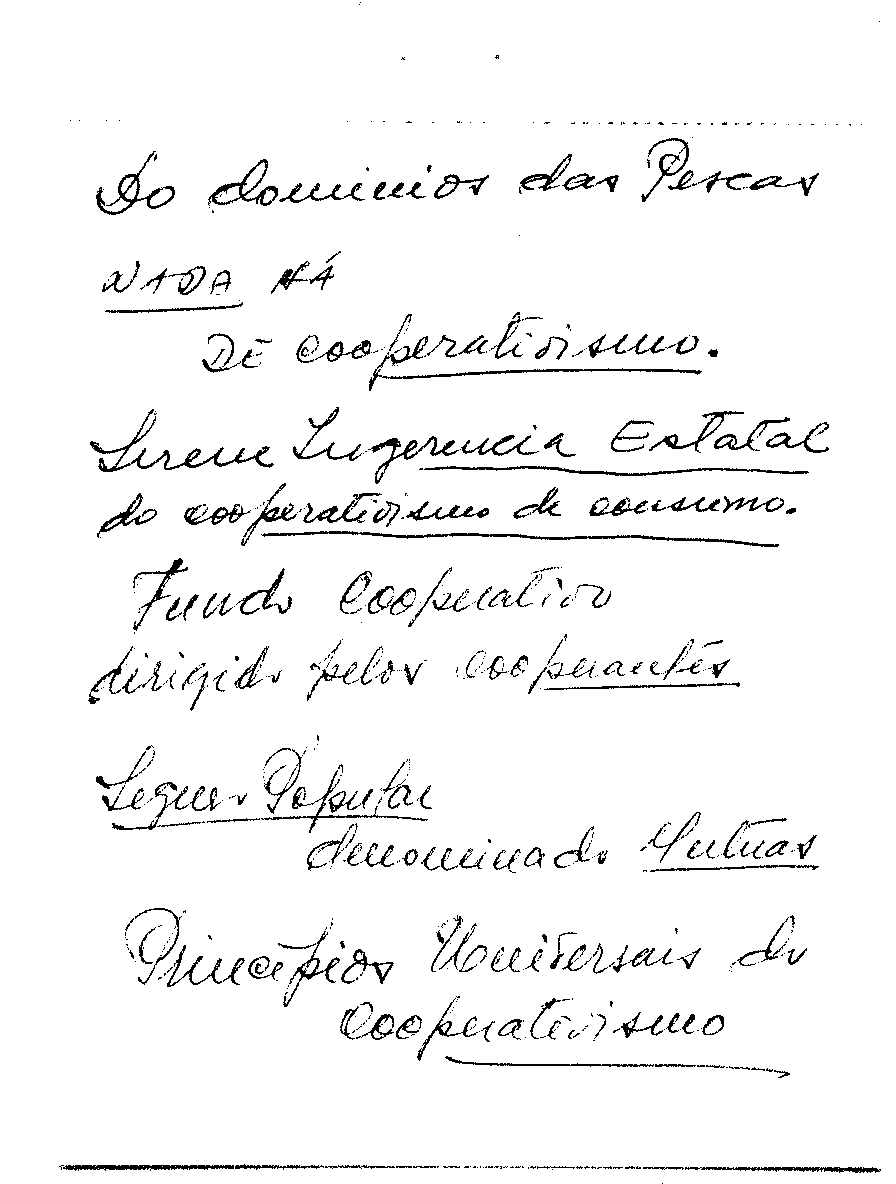 Do dominios das Pescas
NADA HÁ
DE cooperativismo.
Ingerencia Estatal
do cooperativismo de consumo.
Fundo Cooperativo
dirigido pelos cooperantes
Seguro Popular
denominado Mutuas
Princípios Universais do
Cooperativismo